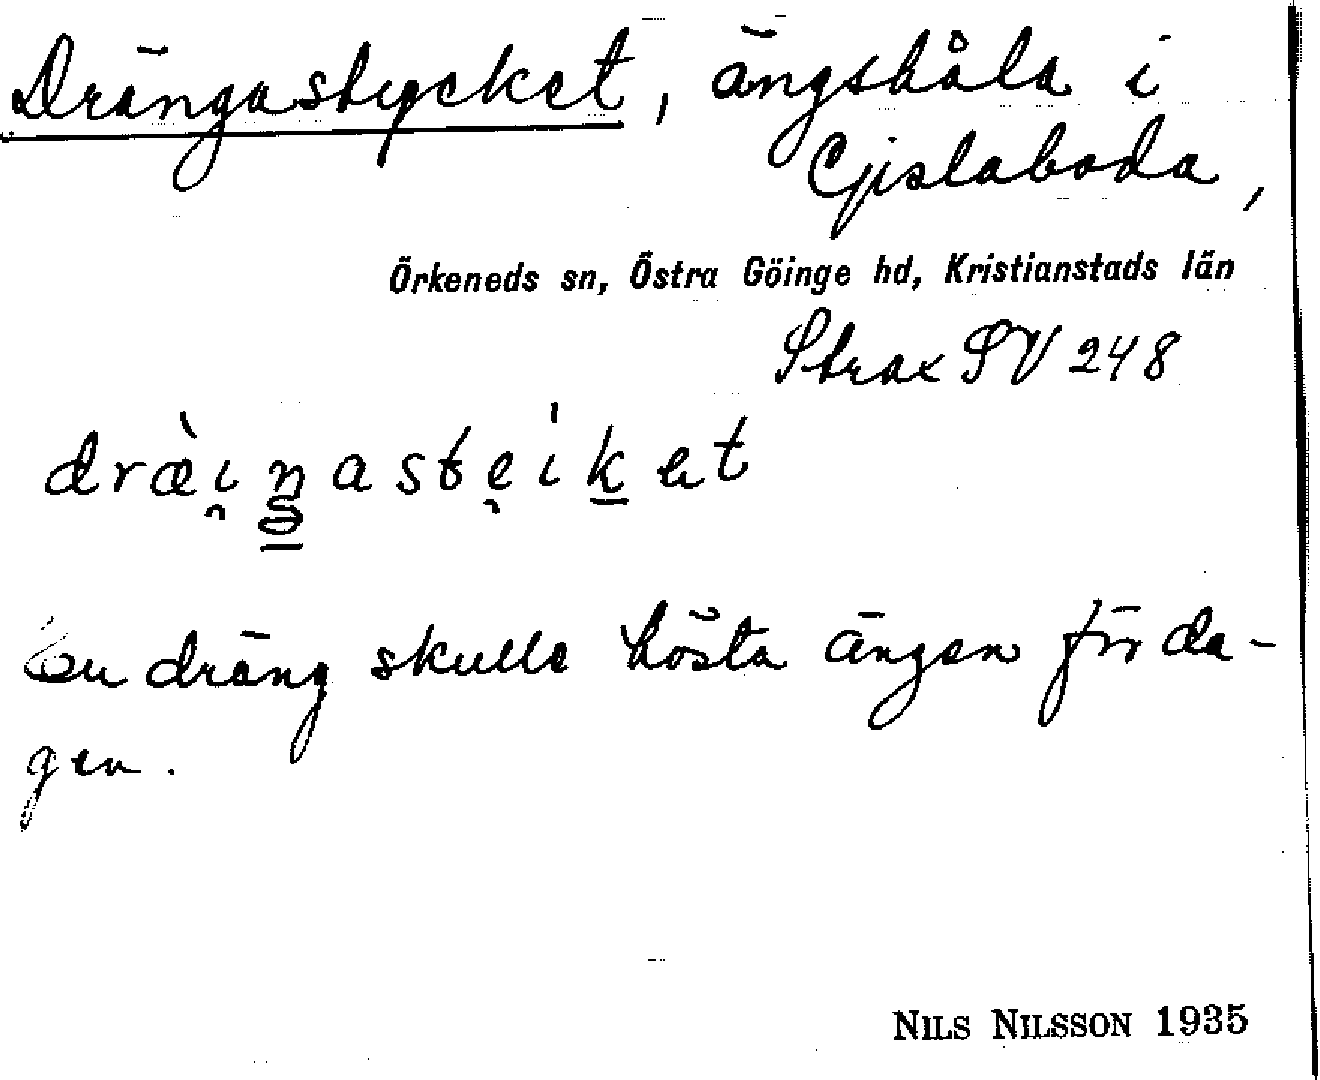 Drängastycket, ängshåla i
Gislaboda,
Örkeneds sn, Östra Göinge hd, Kristianstads län
Strax SV 248
En dräng skulle hösta ängen för da-
gen.
NILS NILSSON 1935